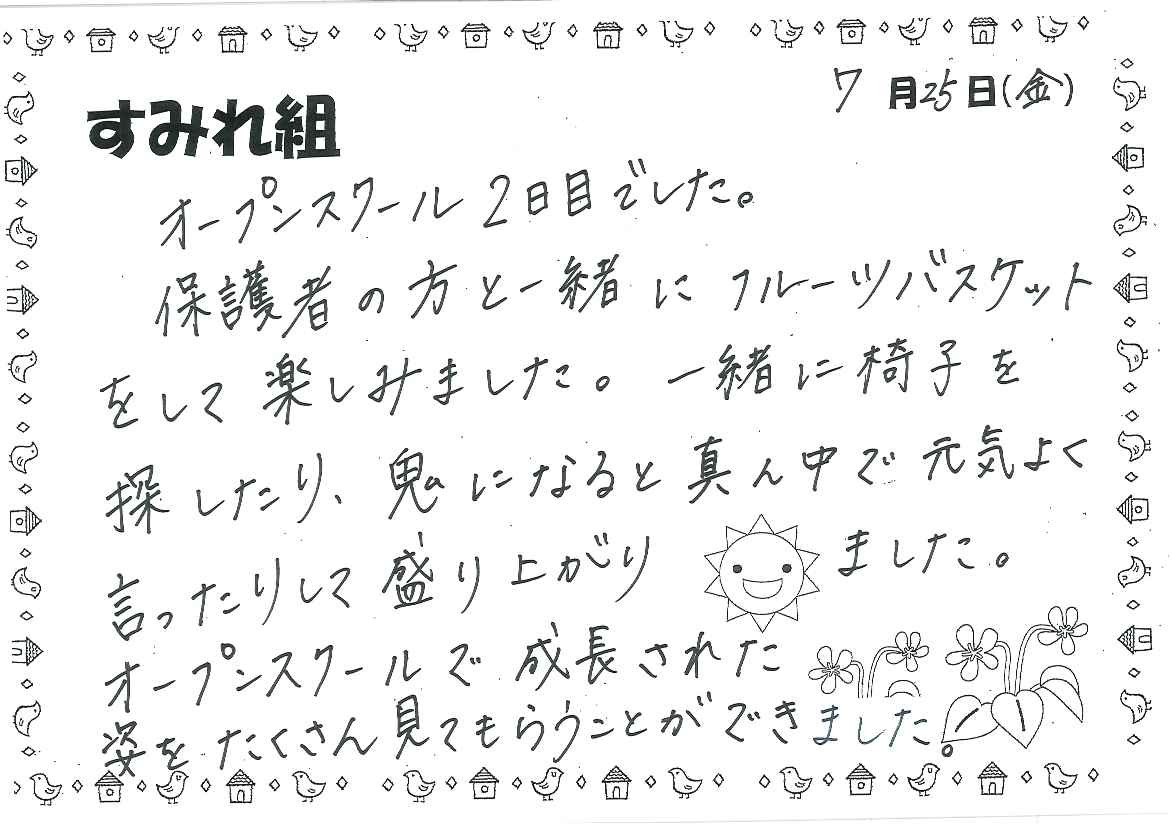 7月25日(金)
すみれ組
オープンスクール2日目でした。
保護者の方と一緒にフルーツバスケット
をして楽しみました。一緒に椅子を
探したり、鬼になると真ん中で元気よく
言ったりして盛り上がりました。
オープンスクールで成長された
姿をたくさん見てもらうことができました。